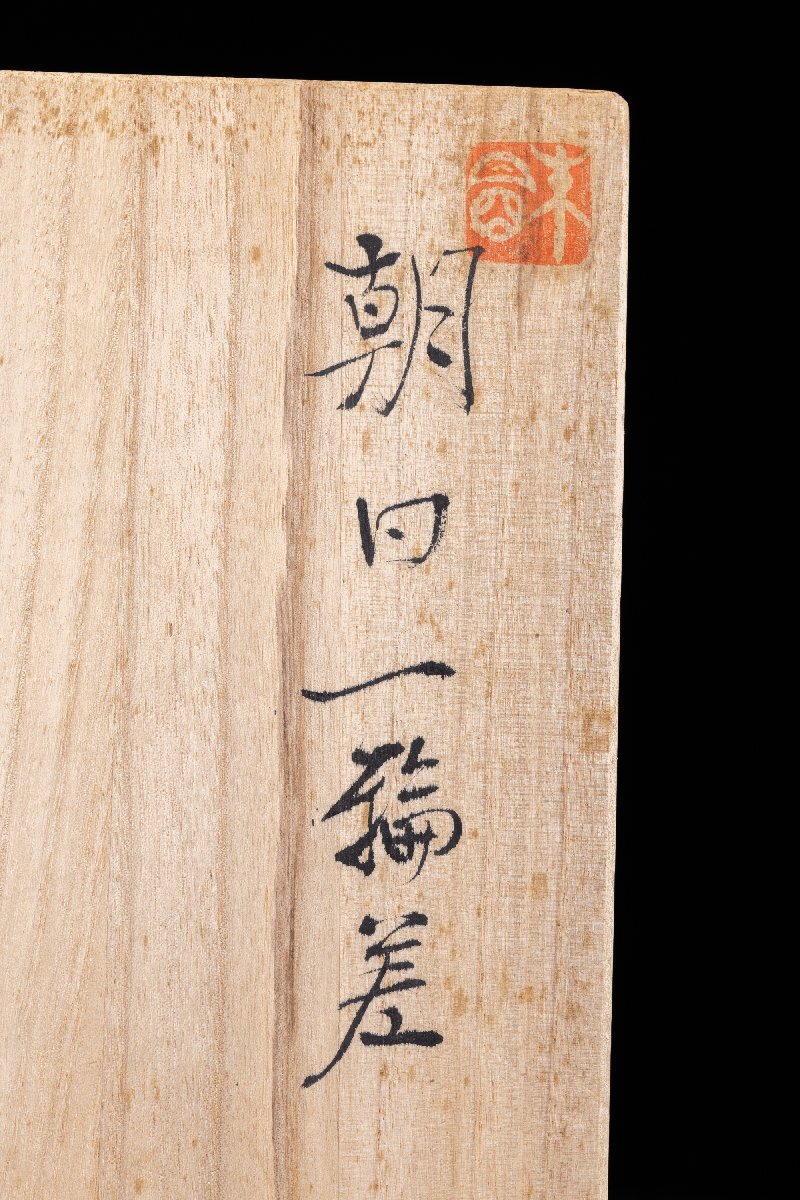 朝日一輪差